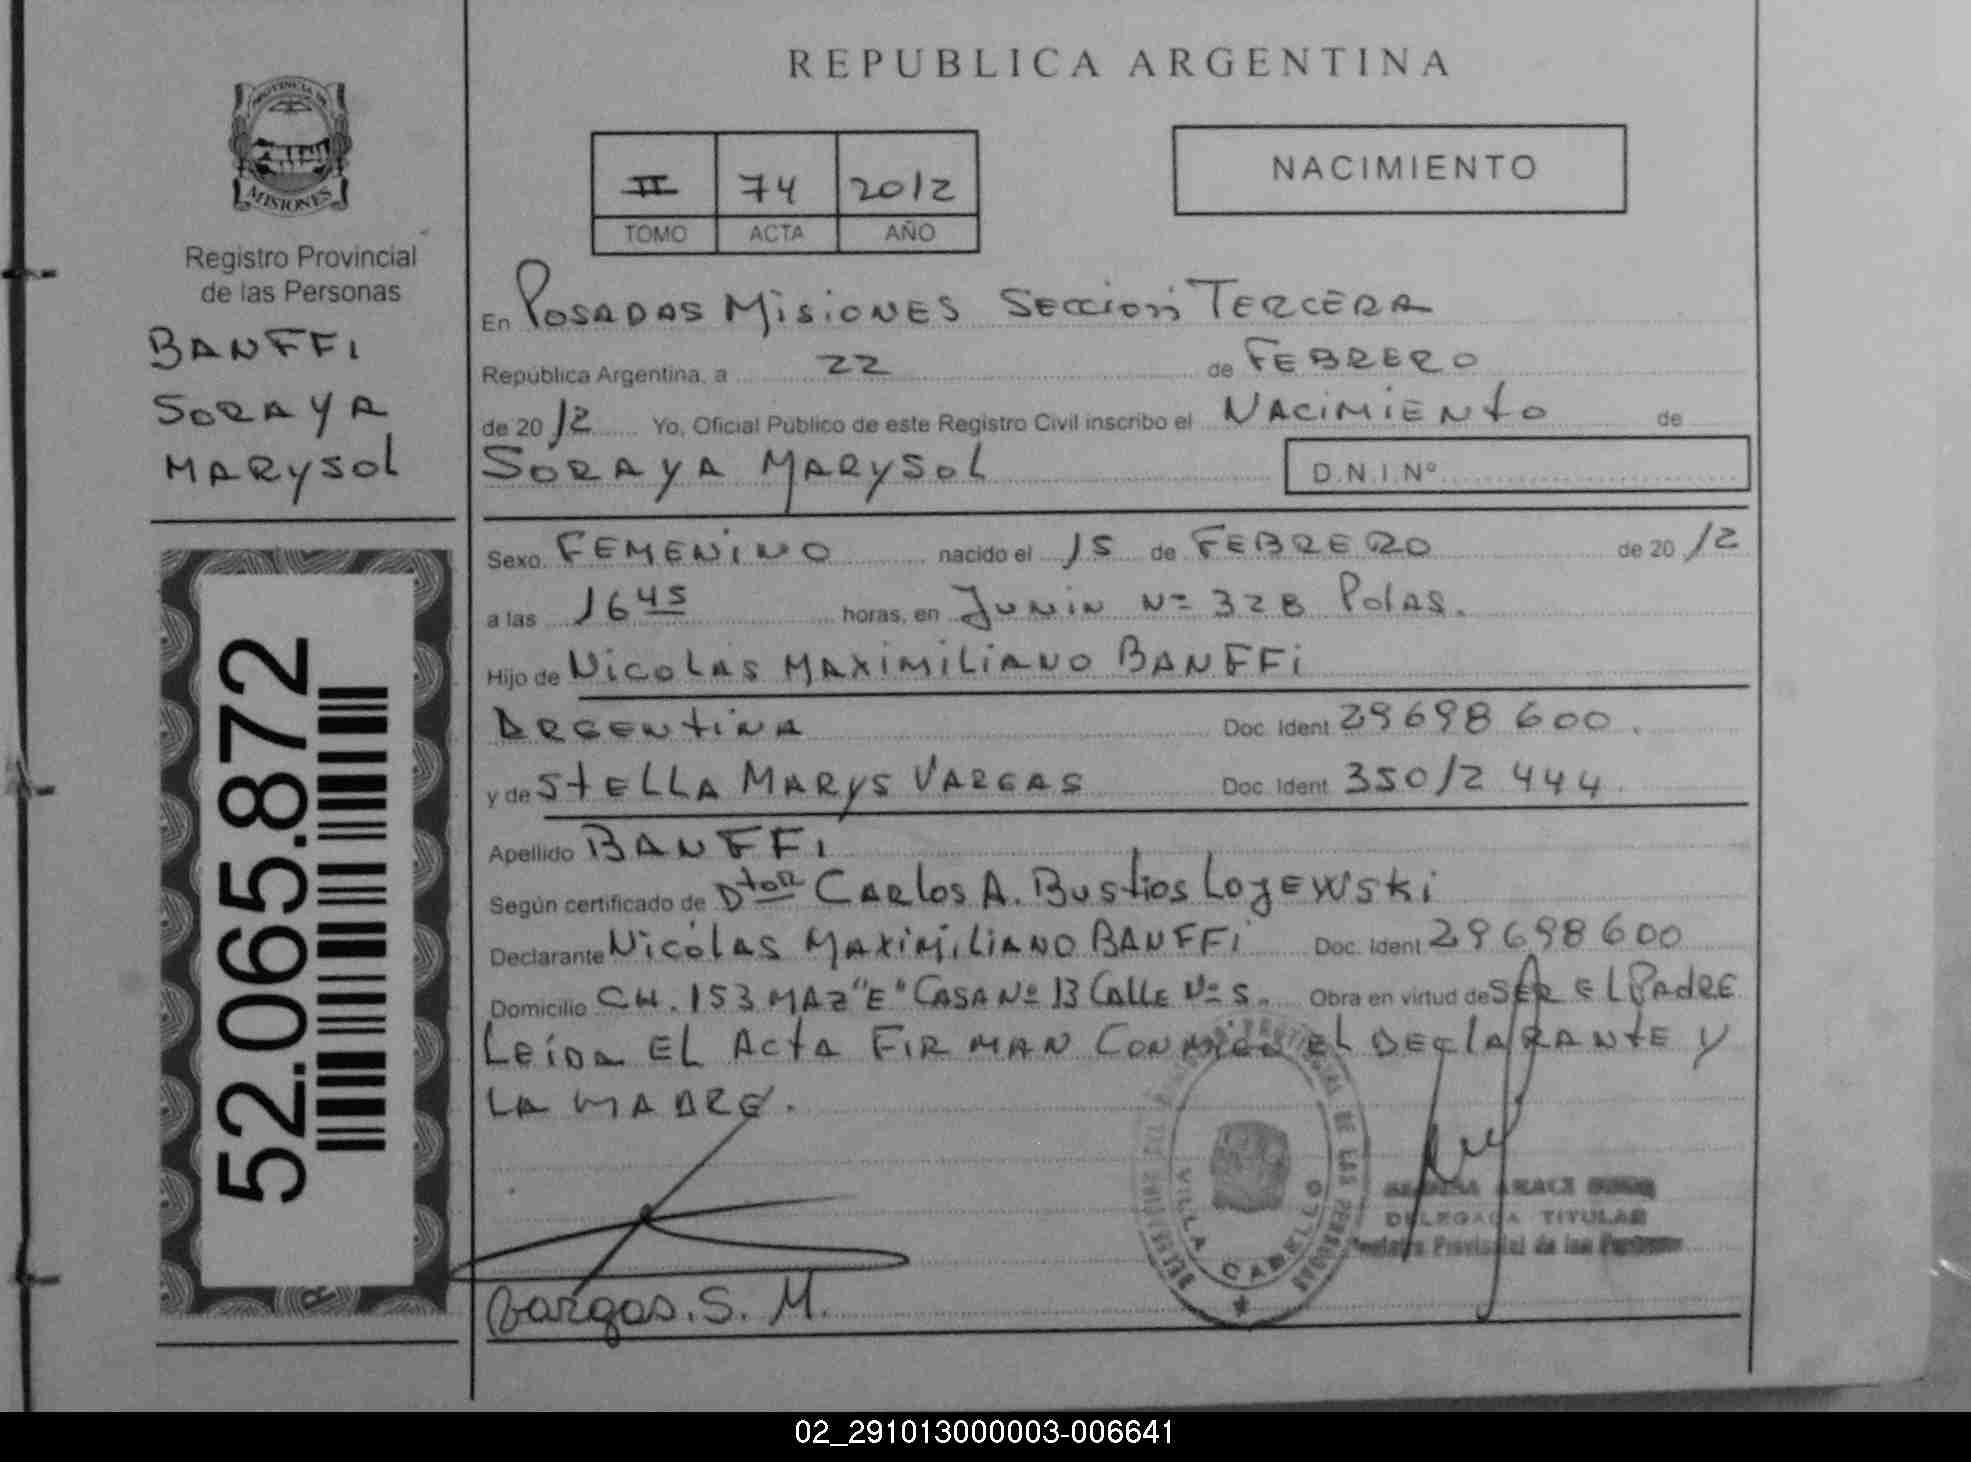 REPUBLICA ARGENTINA
PROVINCIA DE
MISIONES
Registro Provincial
de las Personas
BANFFI
SORAYA
MARYSOL
52.065.872
II 74 2012
TOMO ACTA AÑO
NACIMIENTO
En POSADAS MISIONES SECCION TERCERA
República Argentina, a 22 de FEBRERO
de 2012 Yo, Oficial Público de este Registro Civil inscribo el NACIMIENTO de
SORAYA MARYSOL D.N.I.Nº
Sexo FEMENINO nacido el 15 de FEBRERO de 2012
a las 16 45 horas, en JUNIN Nº 328 Pdas.
Hijo de NICOLAS MAXIMILIANO BANFFI
ARGENTINA Doc. Ident 29698600.
y de STELLA MARYS VARGAS Doc. Ident 35012444.
Apellido BANFFI
Según certificado de Dtor CARLOS A. BUSTIOS LOJEWSKI
Declarante NICOLAS MAXIMILIANO BANFFI Doc. Ident 29698600
Domicilio CH. 153 MAZ "E" CASA Nº 13 CALLE Nº 5. Obra en virtud de SER EL PADRE
LEIDA EL ACTA FIRMAN CONMIGO EL DECLARANTE Y
LA MADRE.
Vargas. S. M.
DE LAS PERSONAS
VILLA CABELLO
DELEGADA TITULAR
02_291013000003-006641